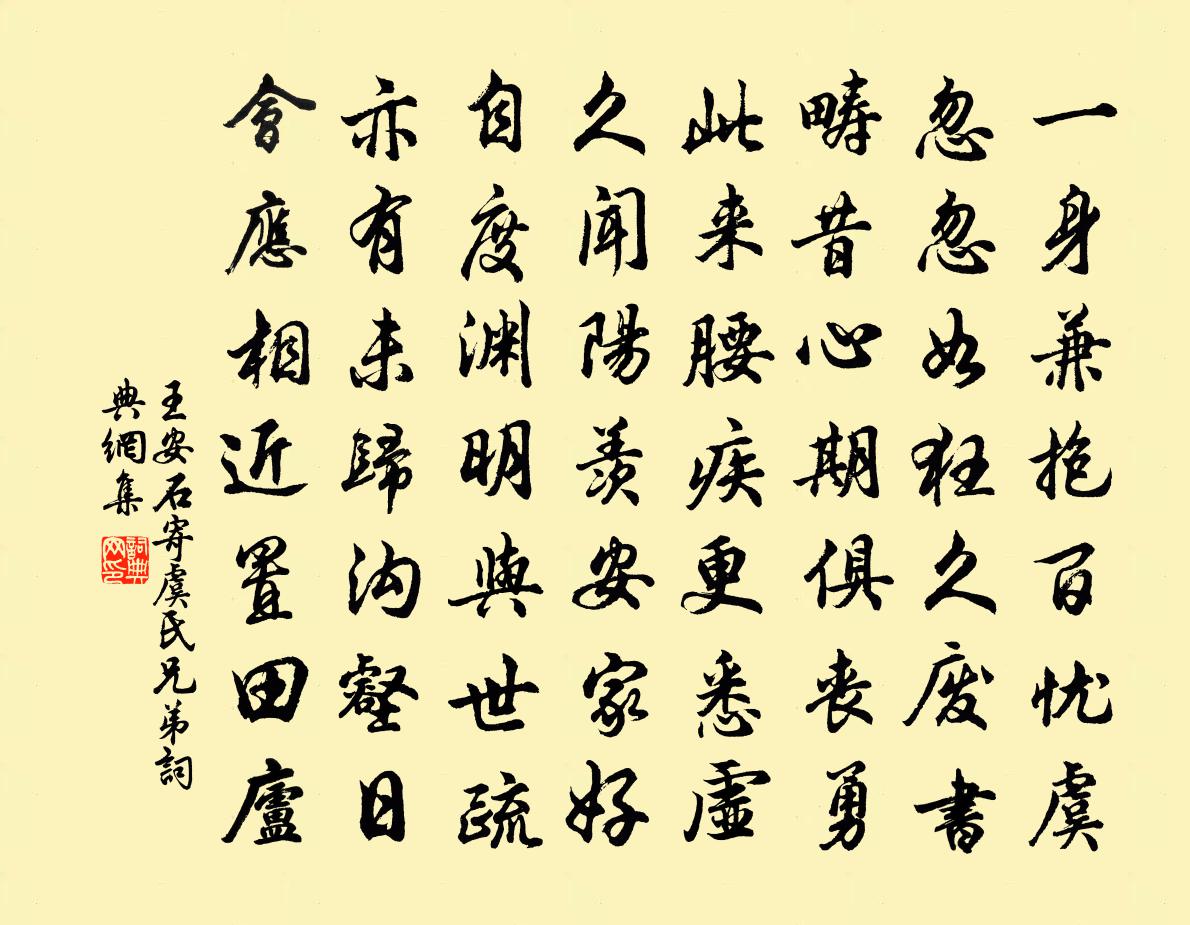 一身兼抱百忧虞
忽忽如狂久废書
疇昔心期俱丧勇
此来腰疾更悉虚
久闻陽羡安家好
自度渊明與世疏
亦有未歸沟壑日
會應相近置田廬
王安石寄虞氏兄弟詞
典網集
詞典
网印